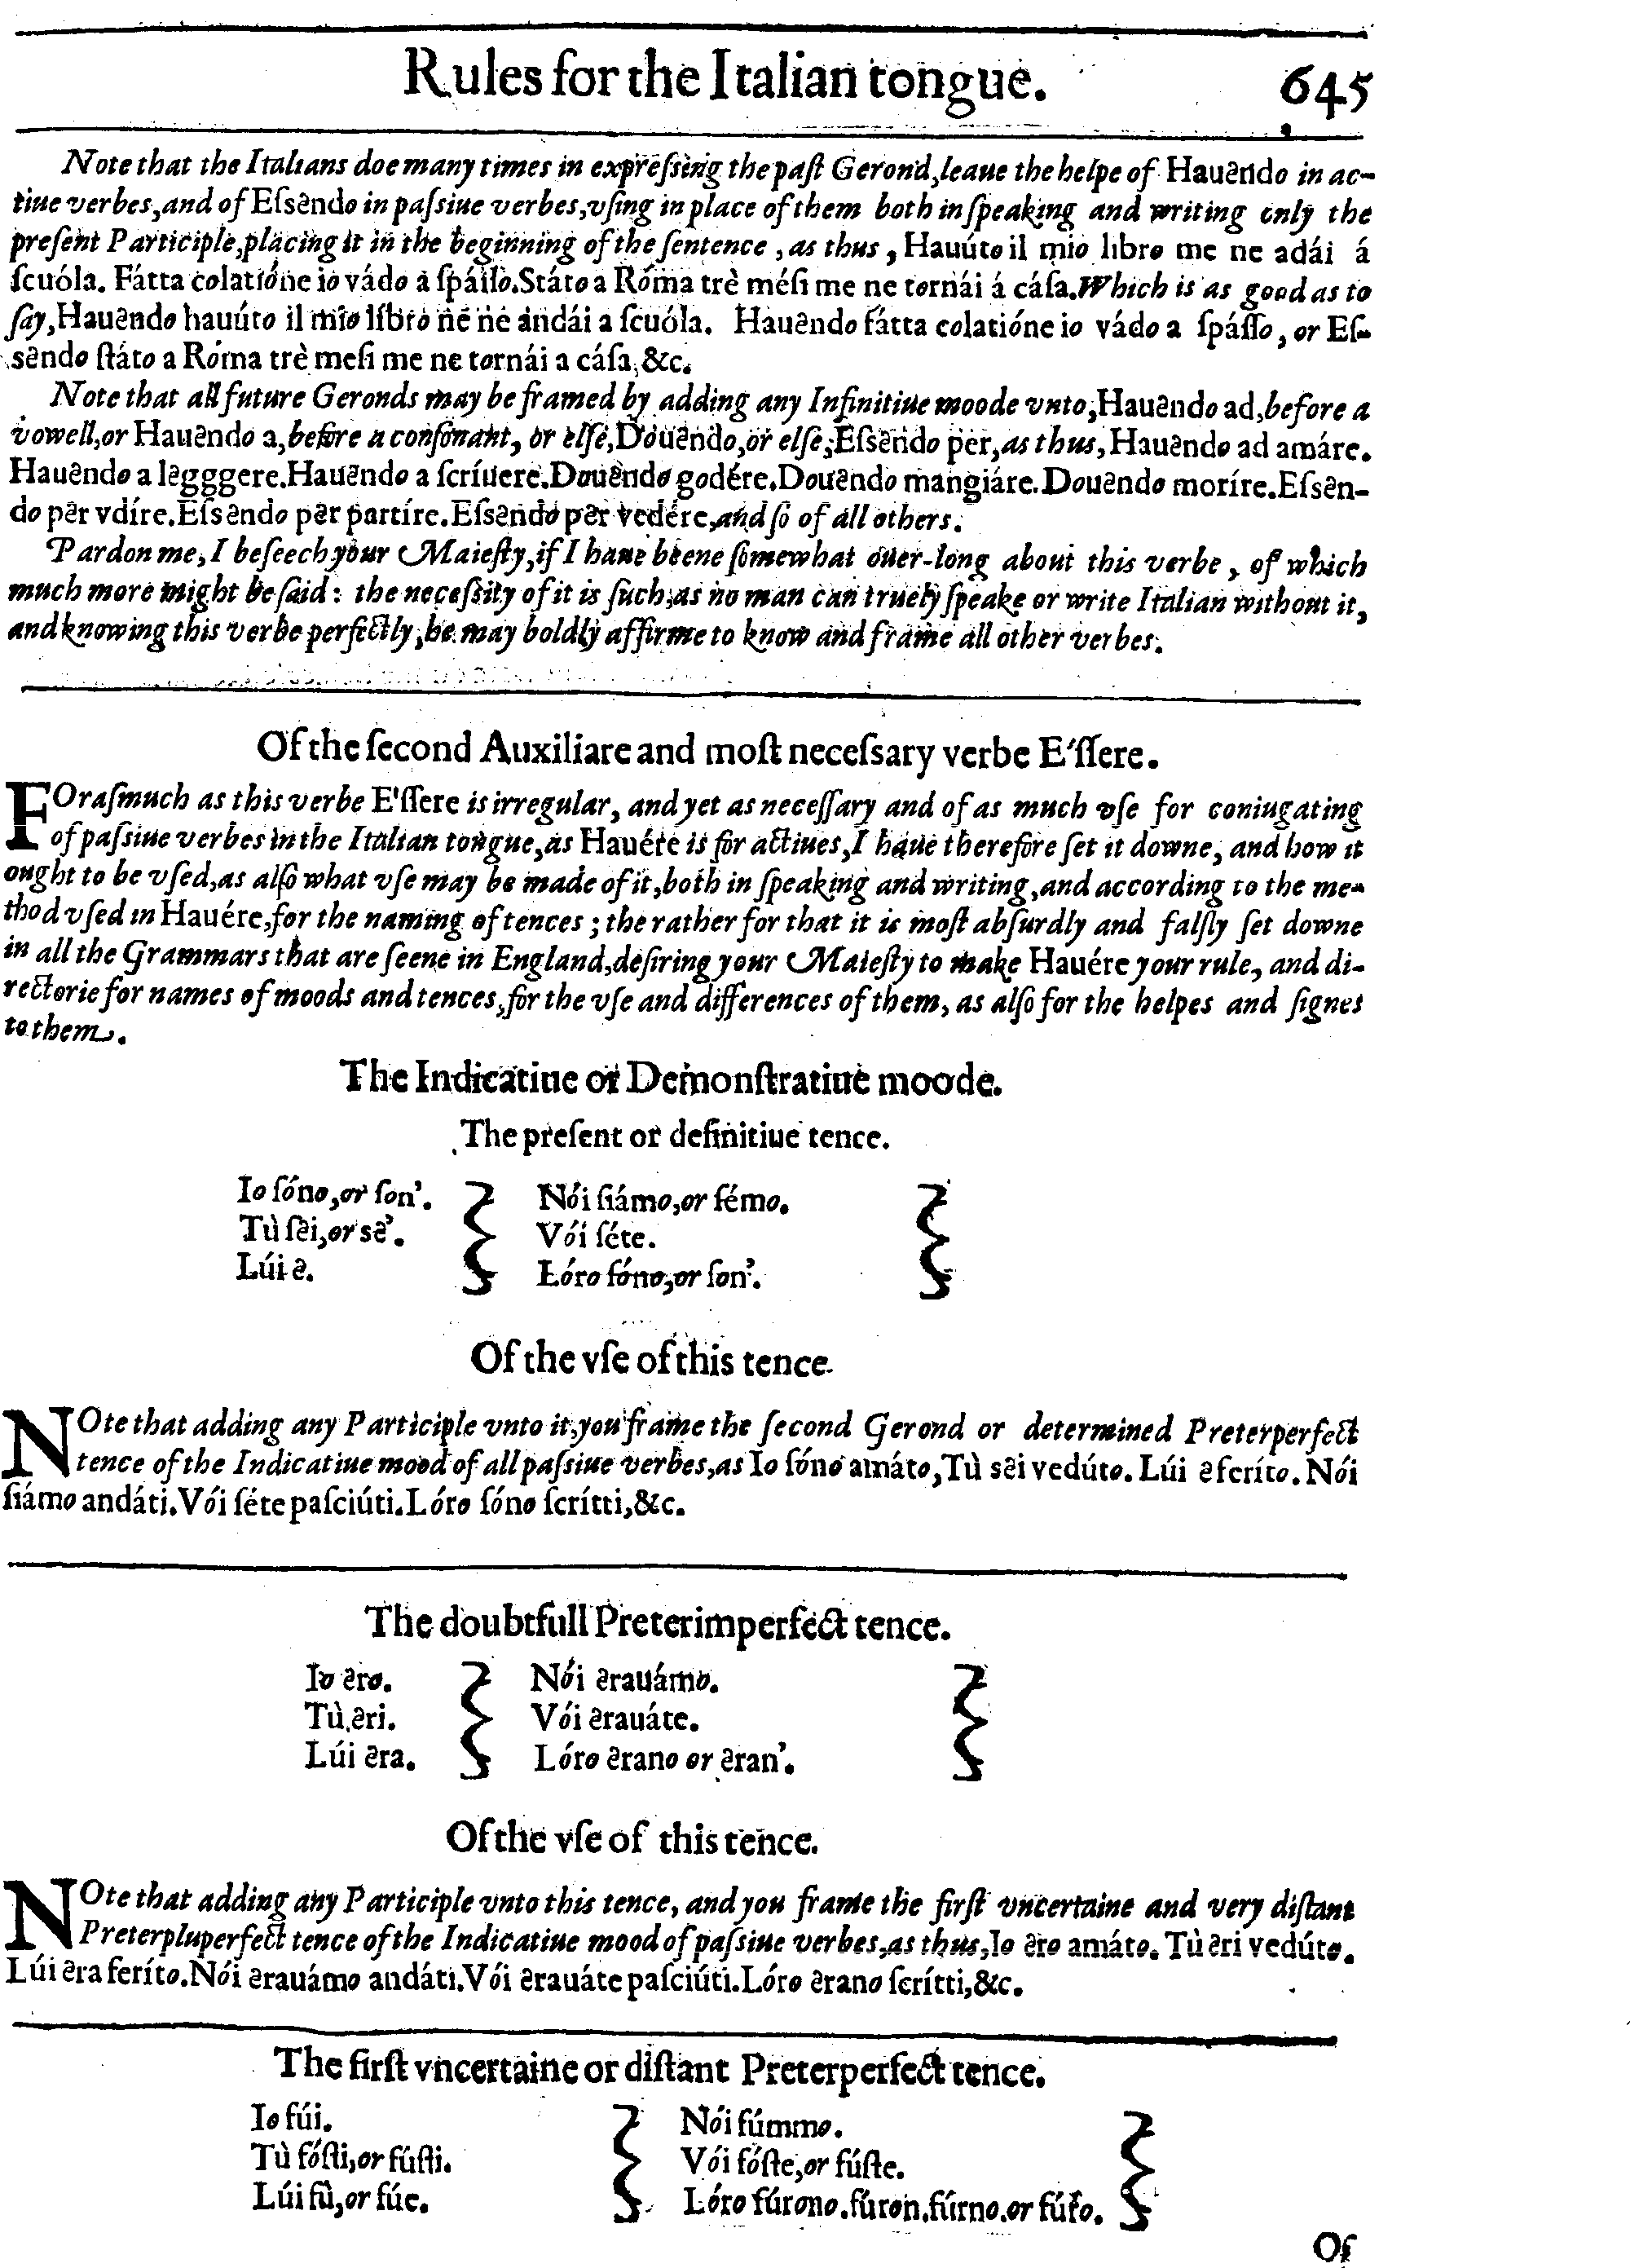 Rules for the Italian tongue. 645
Note that the Italians doe many times in expreſsing the paſt Gerond, leaue the helpe of Hauẽndo in ac-
tiue verbes, and of Eſsẽndo in paſsiue verbes, vſing in place of them both in ſpeaking and writing only the
preſent Participle, placing it in the beginning of the ſentence, as thus, Hauúto il mio libro me ne adái á
ſcuóla. Fátta colatióne io vádo a ſpáſſo. Státo a Róma trè méſi me ne tornái á cáſa. Which is as good as to
ſay, Hauẽndo hauúto il mio líbro ne ne andái a ſcuóla. Hauẽndo fátta colatióne io vádo a ſpáſſo, or Eſ-
sẽndo ſtáto a Róma trè meſi me ne tornái a cáſa, &c.
Note that all future Geronds may be framed by adding any Infinitiue moode vnto, Hauẽndo ad, before a
vowell, or Hauẽndo a, before a conſonant, or elſe, Douẽndo, or elſe, Eſsẽndo per, as thus, Hauẽndo ad amáre.
Hauẽndo a lẽgggere. Hauẽndo a ſcríuere. Douẽndo godére. Douẽndo mangiáre. Douẽndo moríre. Eſsẽn-
do pẽr vdíre. Eſsẽndo pẽr partíre. Eſsẽndo pẽr vedére, and ſo of all others.
Pardon me, I beſeech your Maieſty, if I haue beene ſomewhat ouer-long about this verbe, of which
much more might be ſaid: the neceſsity of it is ſuch, as no man can truely ſpeake or write Italian without it,
and knowing this verbe perfectly, he may boldly affirme to know and frame all other verbes.
Of the ſecond Auxiliare and moſt neceſsary verbe E'ſſere.
FOraſmuch as this verbe E'ſſere is irregular, and yet as neceſſary and of as much vſe for coniugating
of paſsiue verbes in the Italian tongue, as Hauére is for actiues, I haue therefore ſet it downe, and how it
ought to be vſed, as alſo what vſe may be made of it, both in ſpeaking and writing, and according to the me-
thod vſed in Hauére, for the naming of tences; the rather for that it is moſt abſurdly and falſly ſet downe
in all the Grammars that are ſeene in England, deſiring your Maieſty to make Hauére your rule, and di-
rectorie for names of moods and tences, for the vſe and differences of them, as alſo for the helpes and ſignes
to them.
The Indicatiue or Demonſtratiue moode.
The preſent or definitiue tence.
Io ſóno, or ſon'. Nói ſiámo, or ſémo.
Tù ſẽi, or sẽ'. Vói ſéte.
Lúi ẽ. Lóro ſóno, or ſon'.
Of the vſe of this tence.
NOte that adding any Participle vnto it, you frame the ſecond Gerond or determined Preterperfect
tence of the Indicatiue mood of all paſsiue verbes, as Io ſóno amáto, Tù sẽi vedúto. Lúi ẽ feríto. Nói
ſiámo andáti. Vói ſéte paſciúti. Lóro ſóno ſcrítti, &c.
The doubtfull Preterimperfect tence.
Io ẽro. Nói ẽrauámo.
Tù ẽri. Vói ẽrauáte.
Lúi ẽra. Lóro ẽrano or ẽran'.
Of the vſe of this tence.
NOte that adding any Participle vnto this tence, and you frame the firſt vncertaine and very diſtant
Preterpluperfect tence of the Indicatiue mood of paſsiue verbes, as thus, Io ẽro amáto. Tù ẽri vedúto.
Lúi ẽra feríto. Nói ẽrauámo andáti. Vói ẽrauáte paſciúti. Lóro ẽrano ſcrítti, &c.
The firſt vncertaine or diſtant Preterperfect tence.
Io fúi. Nói fúmmo.
Tù fóſti, or fúſti. Vói fóſte, or fúſte.
Lúi fù, or fúe. Lóro fúrono. fúron. fúrno. or fúro.
Of